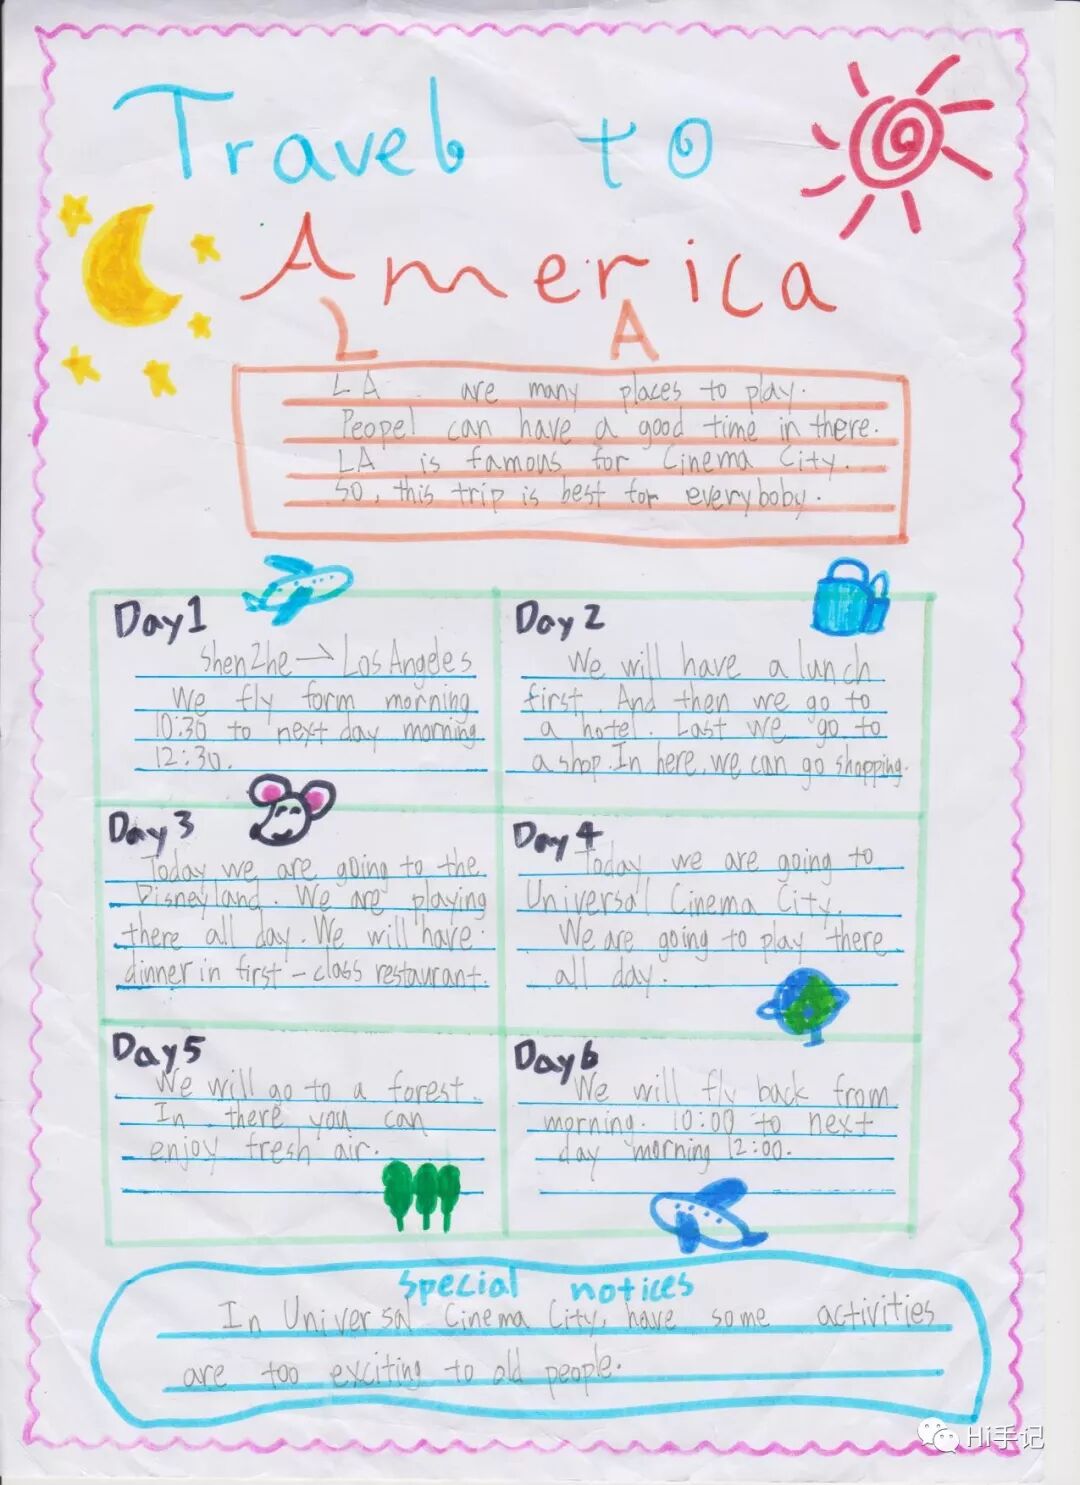 Travel to
America
L A
LA are many places to play.
Peopel can have a good time in there.
LA is famous for Cinema City.
So, this trip is best for everyboby.
Day1
ShenZhe→LosAngeles
We fly form morning
10:30 to next day morning
12:30.
Day 2
We will have a lunch
first. And then we go to
a hotel. Last we go to
a shop. In here, we can go shopping.
Day 3
Today we are going to the
Disneyland. We are playing
there all day. We will have
dinner in first-class restaurant.
Day 4
Today we are going to
Universal Cinema City.
We are going to play there
all day.
Day5
We will go to a forest.
In there you can
enjoy fresh air.
Day6
We will fly back from
morning. 10:00 to next
day morning 12:00.
Special notices
In Universal Cinema City, have some activities
are too exciting to old people.
Hi手记